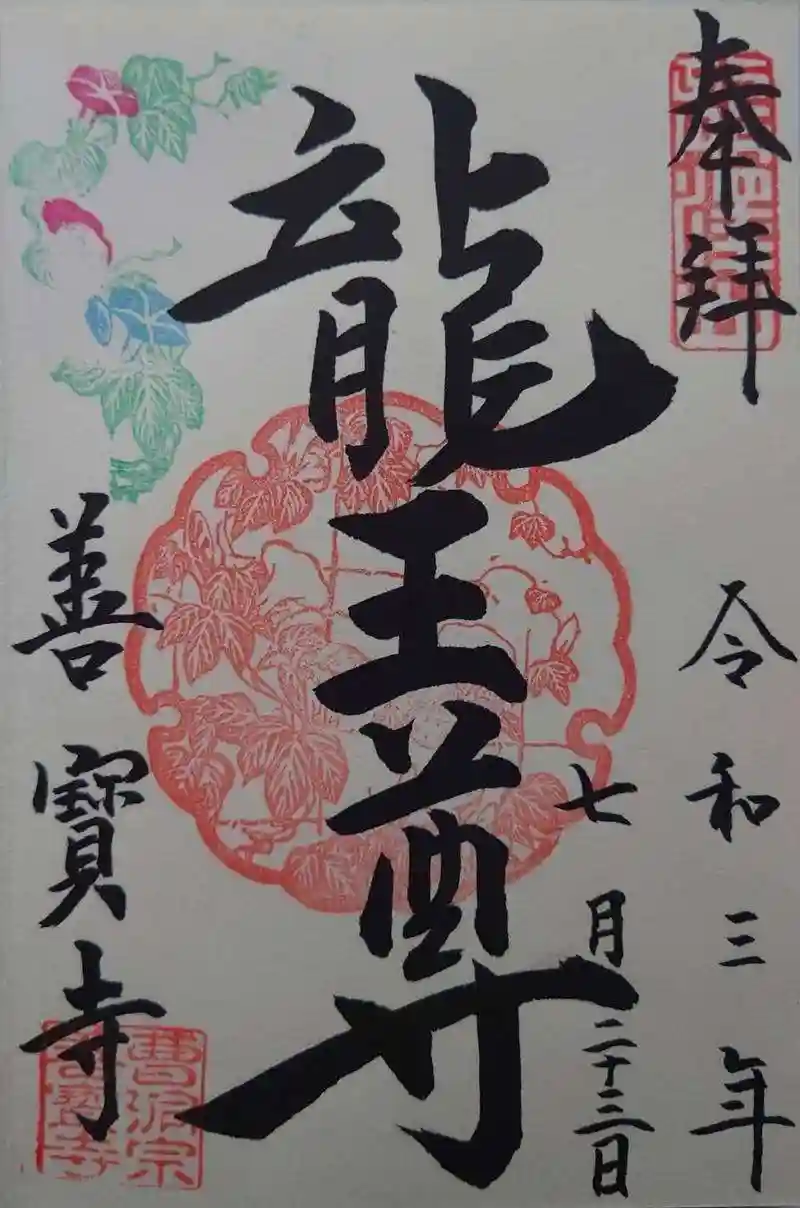 奉拜
令和三年
七月二十三日
龍王尊
善寳寺
曹洞宗
善寳寺